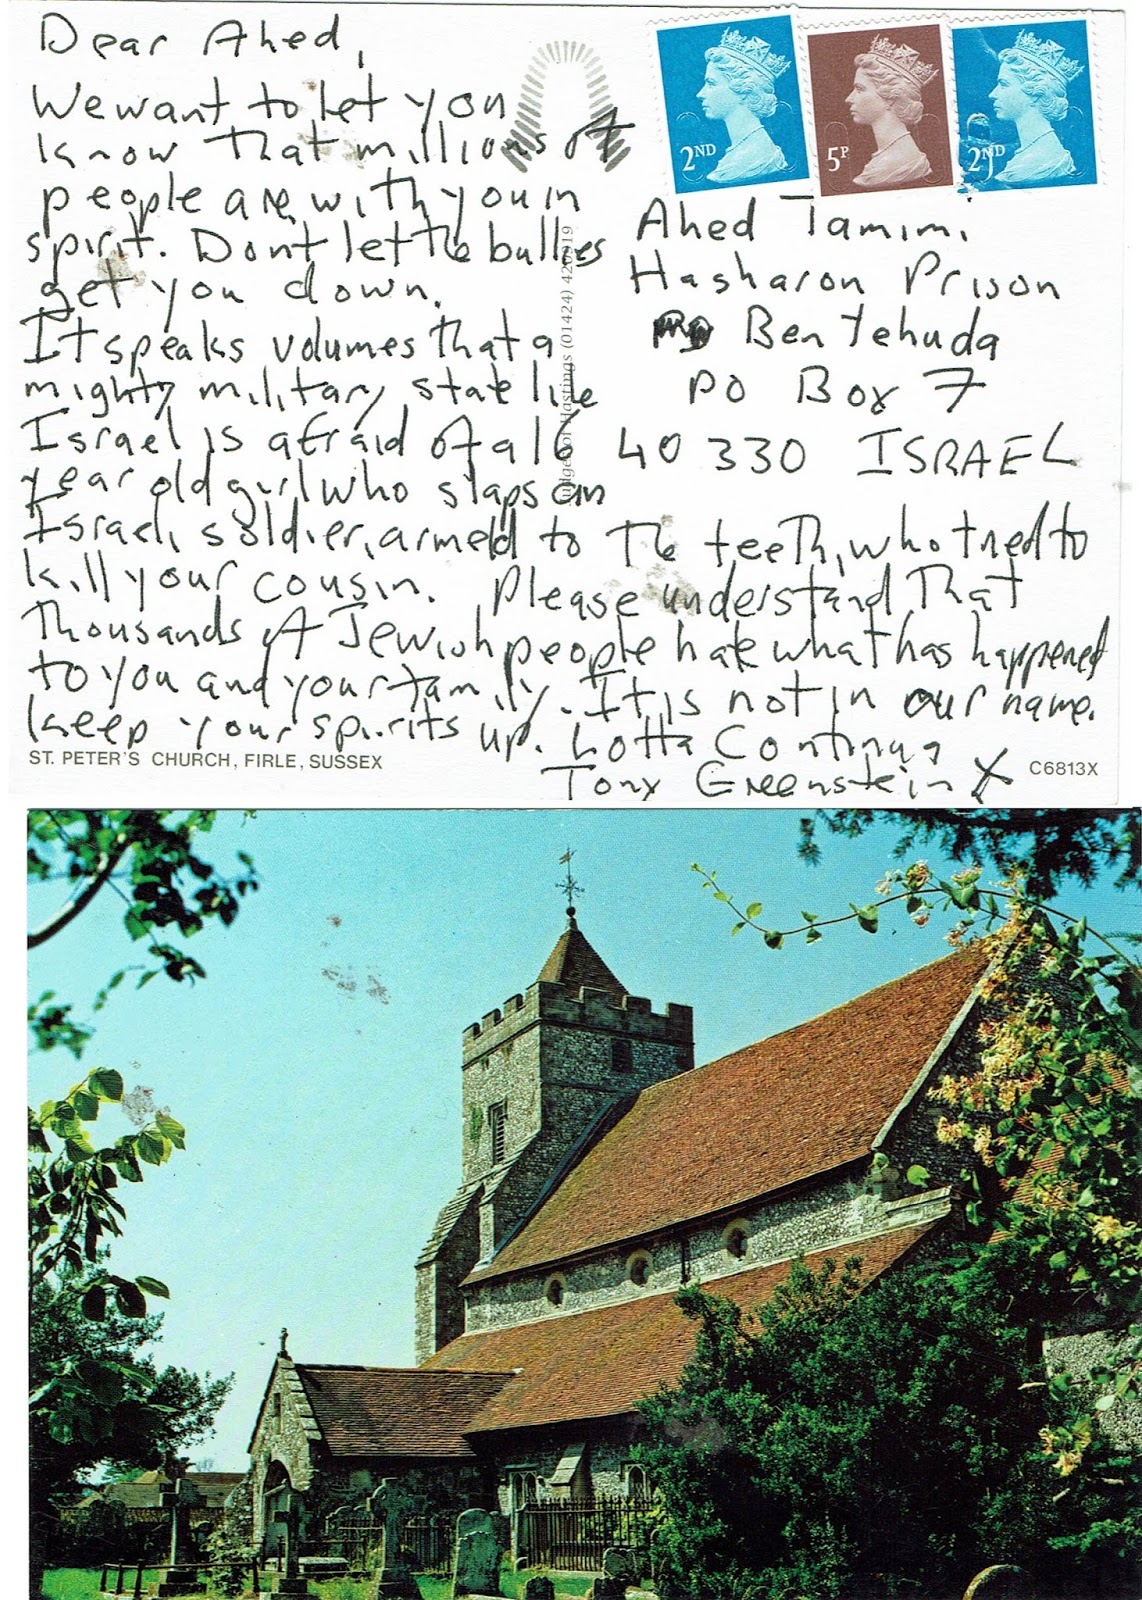 Dear Ahed,
We want to let you
know that millions of
people are with you in
spirit. Dont let the bullies
get you down.
It speaks volumes that a
mighty military state like
Israel is afraid of a 16
year old girl who slaps an
Israeli soldier, armed to the teeth, who tried to
kill your cousin. Please understand that
thousands of Jewish people hate what has happened
to you and your family. It is not in our name.
keep your spirits up. Lotta Continua
Tony Greenstein X
2ND
5P
2ND
Ahed Tamimi
Hasharon Prison
Ben Yehuda
PO Box 7
40 330 ISRAEL
Judges of Hastings (01424) 420919
ST. PETER'S CHURCH, FIRLE, SUSSEX
C6813X